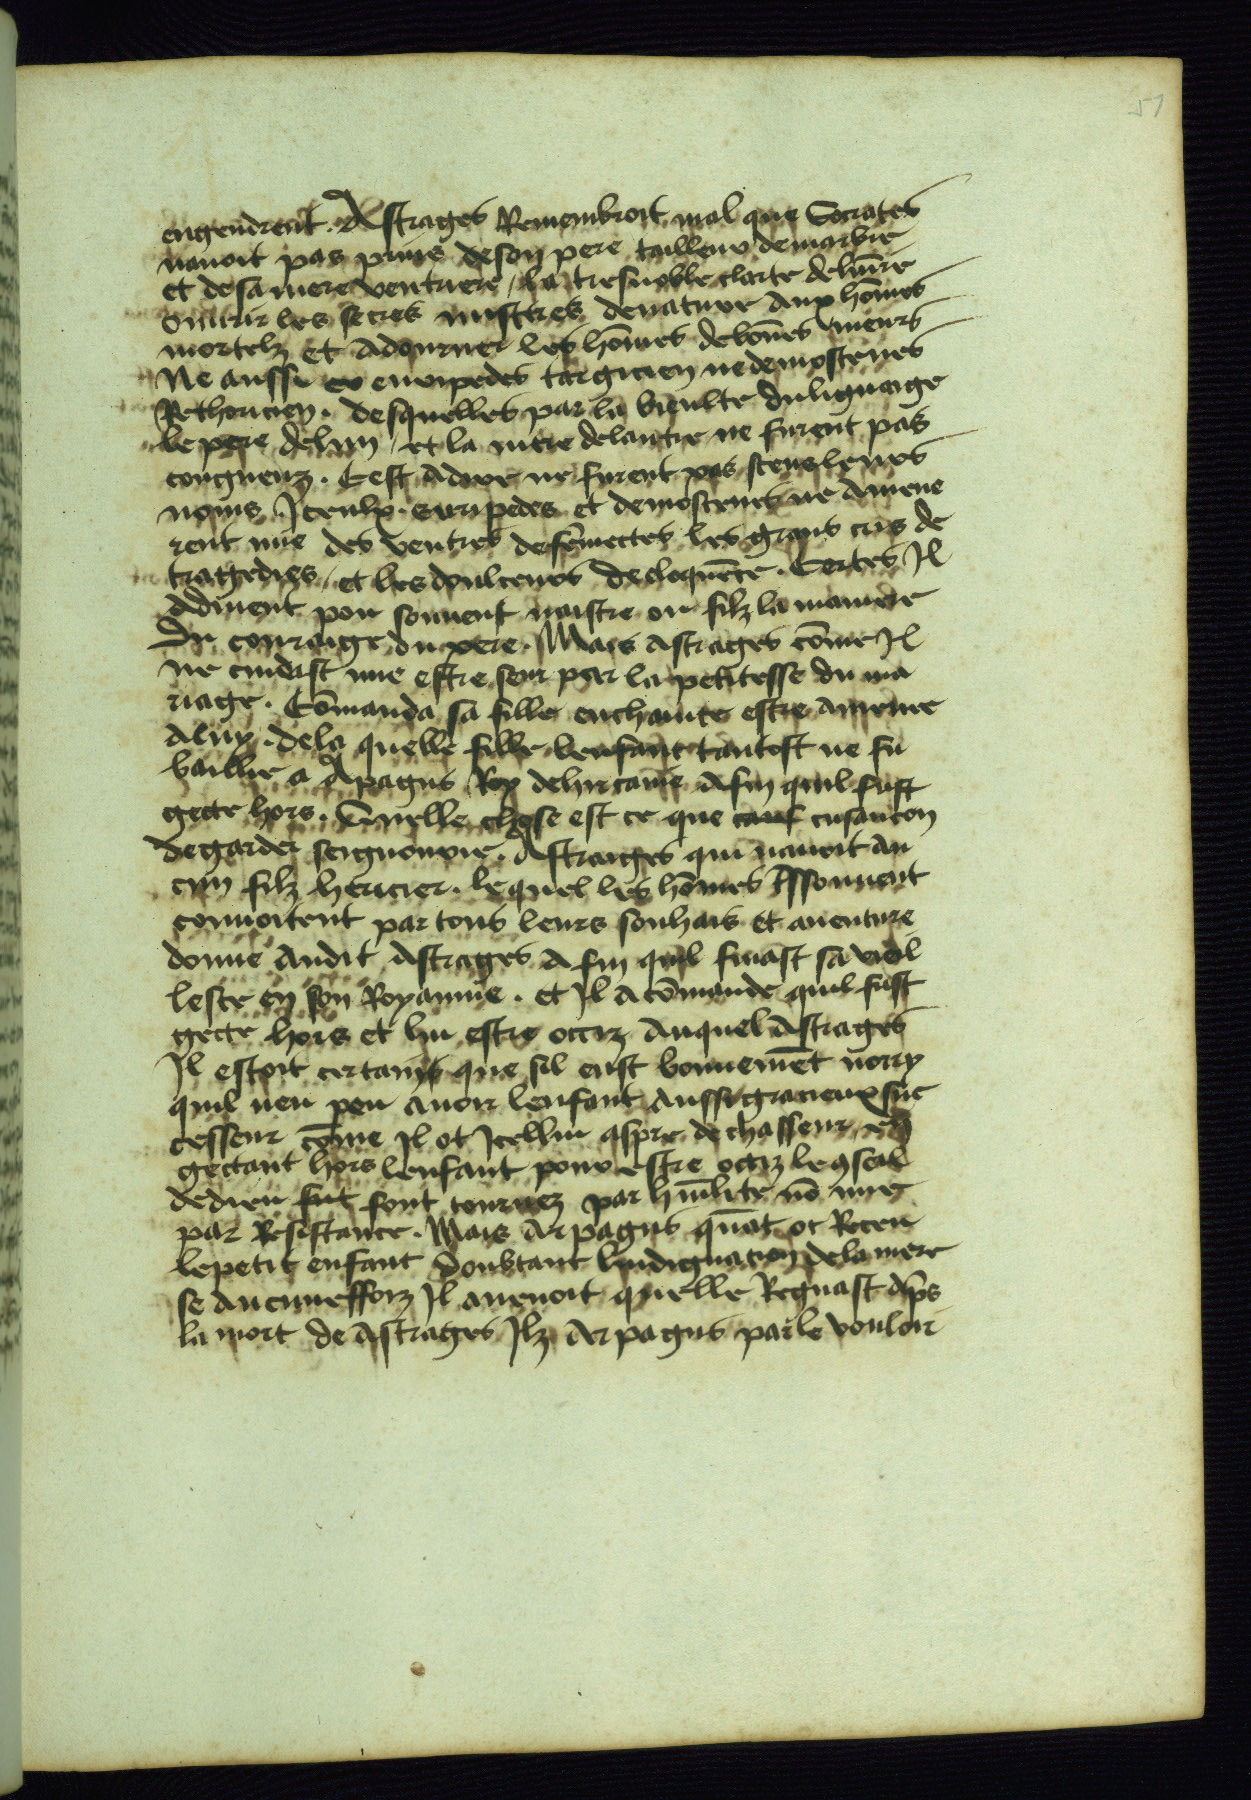 51
engendrent. Astrages Remembroit mal que Socrates
nauoit pas prins de son pere tailleur de marbre
et de sa mere ventriere / la tresnoble clarte de
ouurir les secres de nature aux hōmes
mortelz et adourner les hōmes de bōnes meurs
Ne aussi euripedes targicien ne demostenes
Rethoricien. desquelles par la vieulte du lignaige
le pere de lun / et la mere de lautre ne furent pas
congneuz. Cest adire ne furent pas sceus leurs
noms Iceulx euripedes et demostenes ne amene
rent mie des ventres de femectes les grans cris de
tragedies / et les doulceurs de eloquēce. Certes Il
aduient pou souuent naistre ou filz la maniere
Du couraige du pere. Mais astrages cōme Il
ne cuidast mie estre seur par la petitesse du ma
riage. Cōmanda sa fille enchainte estre amenee
a luy. de la quelle fille lenfant tantost ne fu
baillie a Apagus Roy de hircanie afin quil fust
gecte hors. Quelle chose est ce que cusancon
de garder seignourie. Astraiges qui nauoit au
cun filz heritier. lequel les hōmes
conuoitent par tous leurs souhais et auenture
donne audit Astrages afin quil finast sa viel
lesce en son Royaume. et Il a cōmande quil fust
gecte hors et lui estre occiz auquel Astrages
Il estoit certains que sil eust bonnemēt norry
quil neu peu auoir lenfant aussi gracieux suc
cesseur cōme Il ot Icellui aspre de chasseur en
gectant hors lenfant pour estre occiz le 9seil
de dieu sont tournez par humilite nō mie
par Resistance. Mais Arpagus quāt ot Receu
le petit enfant doubtant lindignacion de la mere
se aucuneffoiz Il auenoit quelle Regnast aps
la mort de Astrages Ilz Arpagus par le vouloir